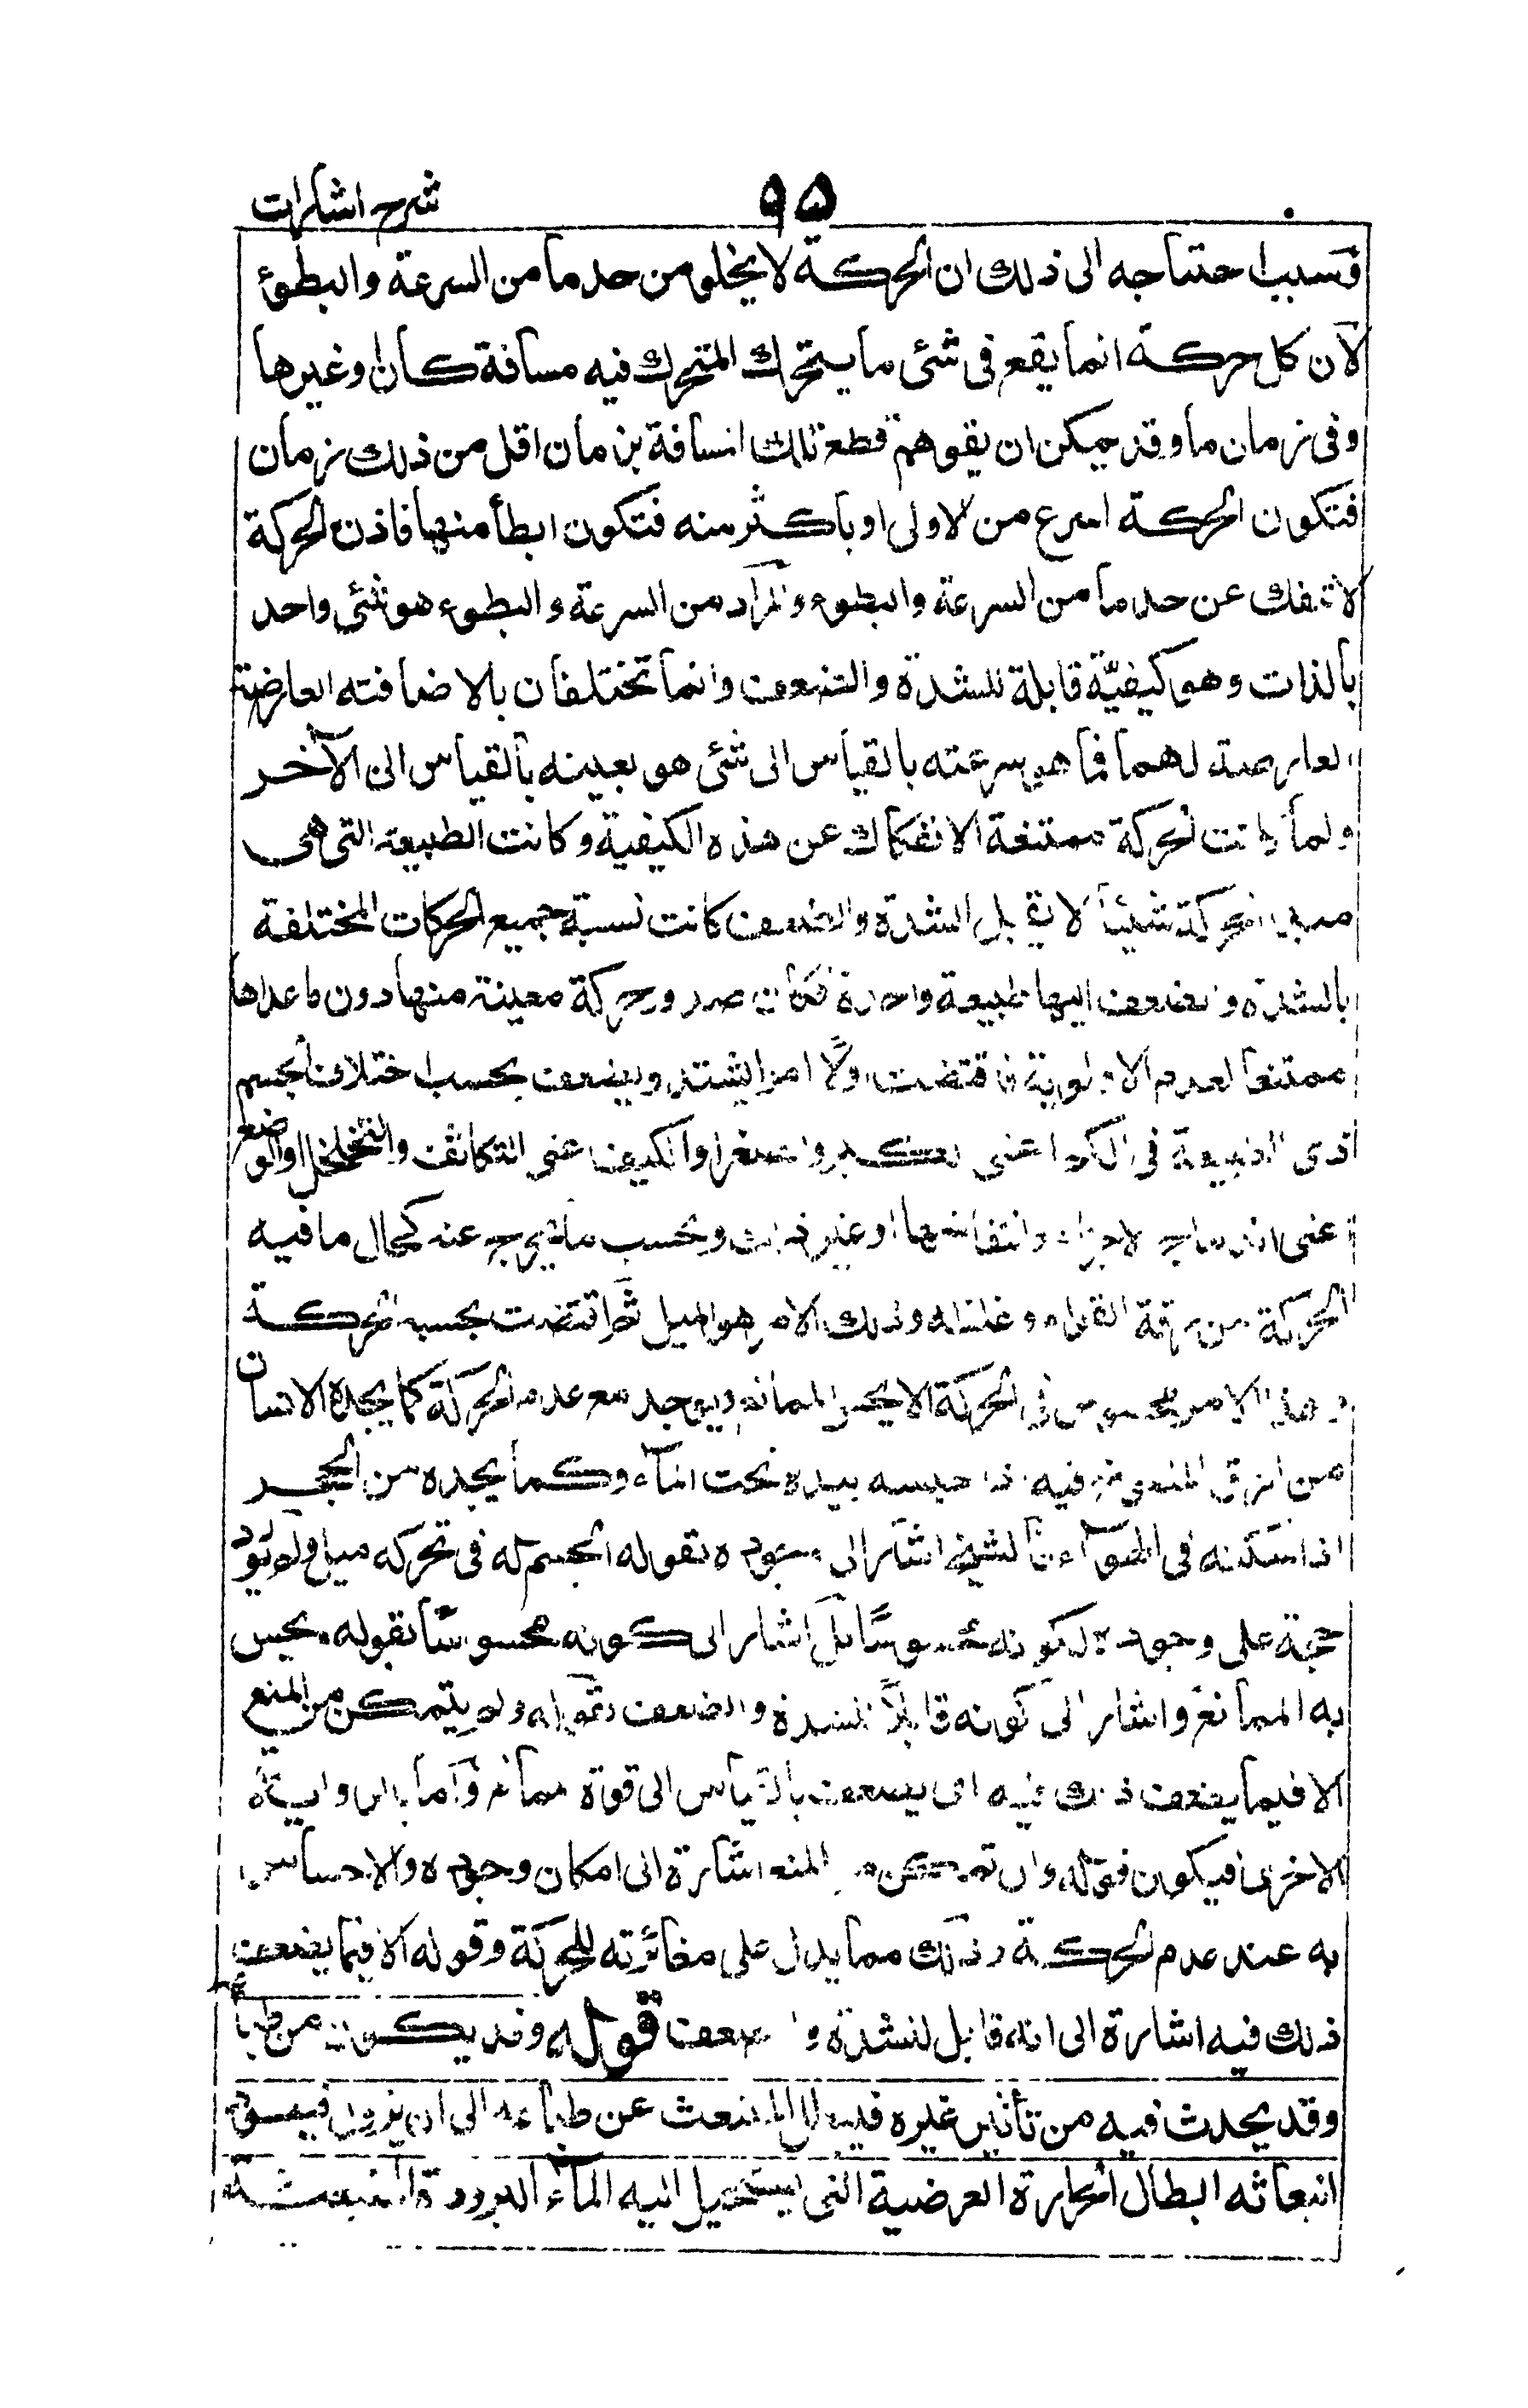 شرح اشارات
۹۵
فسبب احتياجه الى ذلك ان الحركة لا يخلو من حد ما من السرعة والبطوء
لان كل حركة انما يقع فى شئى ما يتحرك المتحرك فيه مسافة كان او غيرها
وفى زمان ما وقد يمكن ان يتوهم قطع تلك المسافة بزمان اقل من ذلك زمان
فتكون الحركة اسرع من الاولى او باكثر منه فتكون ابطأ منها فاذن الحركة
لا تنفك عن حد ما من السرعة والبطوء والمراد من السرعة والبطوء هو شئى واحد
بالذات وهو كيفيّة قابلة للشدة والضعف وانما تختلفان بالاضافته العارضة
العارضة لهما فما هو سرعته بالقياس الى شئى هو بعينه بالقياس الى الآخر
ولما كانت الحركة ممتنعة الانفكاك عن هذه الكيفية وكانت الطبيعة التى هى
مبدء الحركة شيئا لا يقبل الشدة والضعف كانت نسبة جميع الحركات المختلفة
بالشدة والضعف اليها طبيعة واحدة فكان صدور حركة معينة منها دون ما عداها
ممتنعا لعدم الاولوية فاقتضت اولا امرا يشتد ويضعف بحسب اختلاف الجسم
ذى الطبيعة فى الكم اعنى الكبر والصغر او الكيف اعنى التكاثف والتخلخل او الوضع
اعنى اندماج الاجزاء وانتفاشها او غير ذلك وبحسب ما يخرج عنه كحال ما فيه
الحركة من رقة القوام وغلظه وذلك الامر هو الميل ثم اقتضت بحسبه الحركة
وهذا الامر محسوس فى الحركة الا يحس الممانع ويوجد مع عدم الحركة كما يجده الانسان
من الزق المنفوخ فيه اذا حبسه بيده تحت الماء وكما يجده من الحجر
اذا سكنه فى الهواء فالشيخ اشار الى وجوده بقوله الجسم له فى تحركه ميل ولم يورد
حجة على وجوده لكونه محسوسا بل اشار الى كونه محسوسا بقوله ويحس
به الممانع واشار الى كونه قابلا للشدة والضعف بقوله ولم يتمكن من المنع
الا فيما يضعف ذلك فيه اى يضعف بالقياس الى قوة ممانع واما بالرواية
الاخرى فيكون قوله وان تمكن من المنع اشارة الى امكان وجوده والاحساس
به عند عدم الحركة وذلك مما يدل على مغائرته للحركة وقوله الا فيما يضعف
ذلك فيه اشارة الى انه قابل لشدة وضعف قوله وقد يكون من طباعه
وقد يحدث فيه من تأثير غيره فيبطل المنبعث عن طباعه الى ان يزول فيعود
انبعاثه ابطال الحرارة العرضية التى يستحيل اليه الماء للبرودة المنبعثة